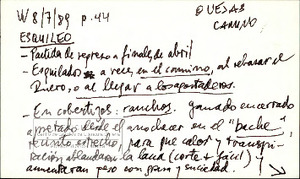 W 8/7/89 p.44
OVEJAS
CAMINO
ESQUILEO
- Partida de regreso a finales de abril
- Esquilado a veces en el camino, al rebasar el
Duero, o al llegar a los apostaderos.
- En cobertizos: ranchos. ganado encerrado
apretado desde el anochecer en el "bache"
recinto estrecho, para que calor y transpi-
ración ablandaran la lana (corte + fácil) y
aumentaran peso con grasa y suciedad.